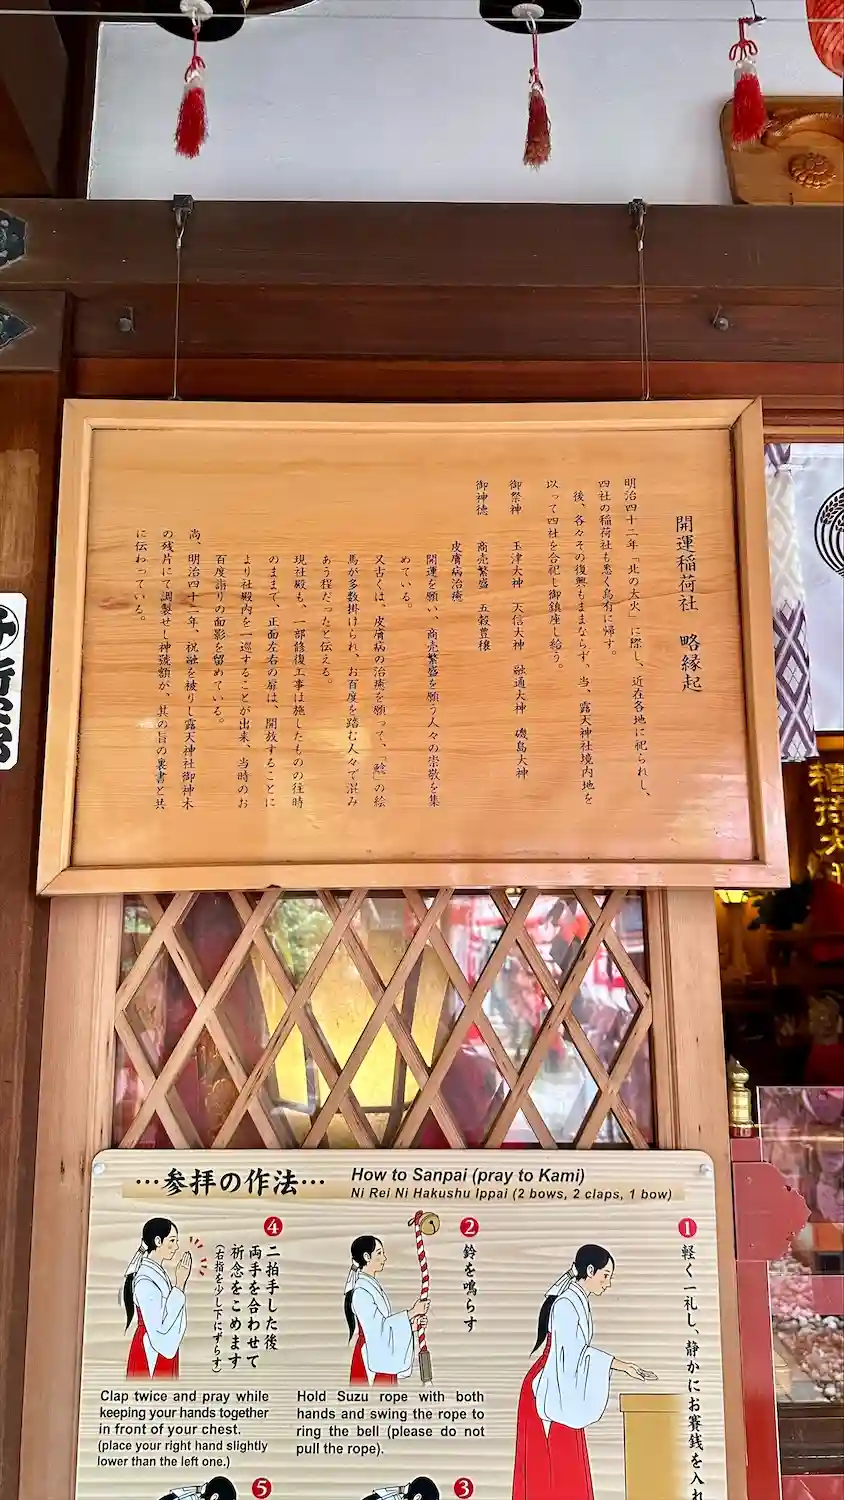 開運稲荷社 略縁起
明治四十二年「北の大火」に際し、近在各地に祀られし、
四社の稲荷社も悉く烏有に帰す。
後、各々その復興もままならず、当、露天神社境内地を
以って四社を合祀し御鎮座し給う。
御祭神 玉津大神 天信大神 融通大神 磯島大神
御神徳 商売繁盛 五穀豊穣
皮膚病治癒
開運を願い、商売繁盛を願う人々の崇敬を集
めている。
又古くは、皮膚病の治癒を願って、「鯰」の絵
馬が多数掛けられ、お百度を踏む人々で混み
あう程だったと伝える。
現社殿も、一部修復工事は施したものの往時
のままで、正面左右の扉は、開放することに
より社殿内を一巡することが出来、当時のお
百度詣りの面影を留めている。
尚、明治四十二年、祝融を被りし露天神社御神木
の残片にて調製せし神號額が、其の旨の裏書と共
に伝わっている。
…参拝の作法…
How to Sanpai (pray to Kami)
Ni Rei Ni Hakushu Ippai (2 bows, 2 claps, 1 bow)
1
軽く一礼し、静かにお賽銭を入れ
2
鈴を鳴らす
Hold Suzu rope with both
hands and swing the rope to
ring the bell (please do not
pull the rope).
3
4
二拍手した後
両手を合わせて
祈念をこめます
(右指を少し下にずらす)
Clap twice and pray while
keeping your hands together
in front of your chest.
(place your right hand slightly
lower than the left one.)
5